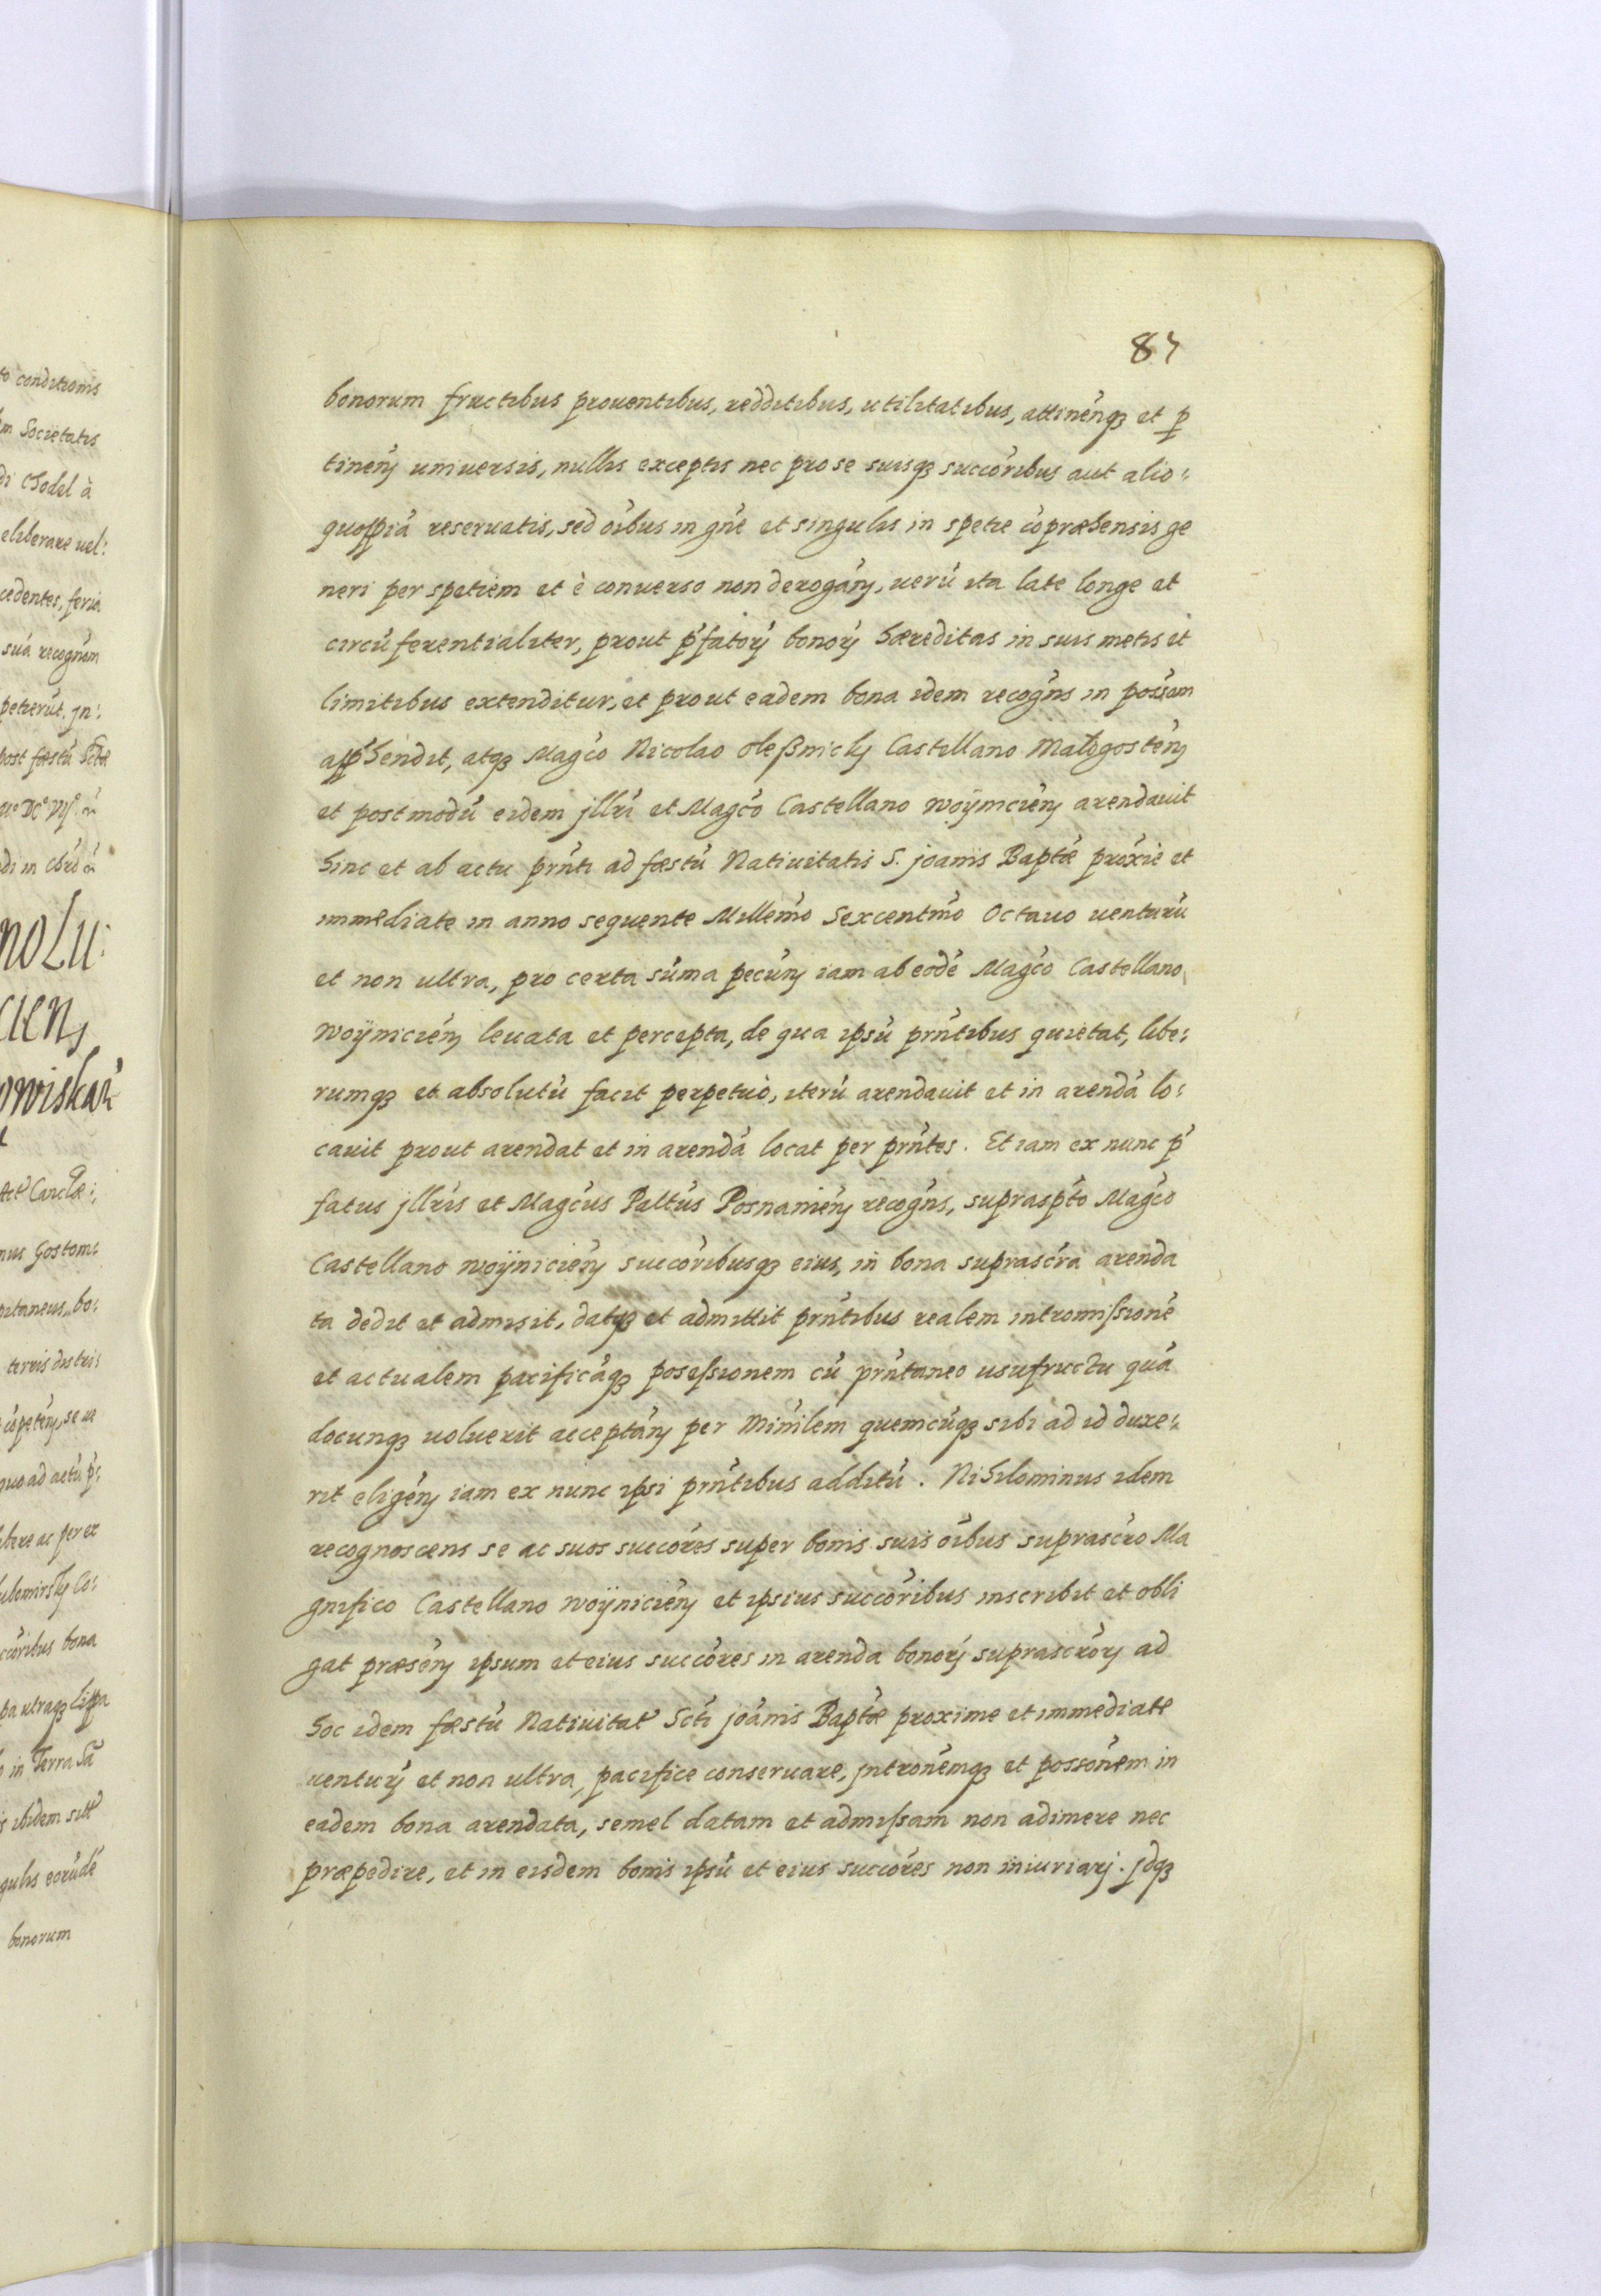 to conditionis
m Societatis
di Chodel à
eliberare uel:
cedentes, feria
suá recognem
petierút. jn:
post fæstú Sctæ
di in
noLu:
cien,
owiskań
Act Canclæ:,
nus Gostom:
pitaneus, bo:
terris distri:
cópetén, se ue
quo ad actú
libere ac per ex
ubomirsky Co:
ccóribus bona
in Terra Sã
s ibidem sitt
gulis eorúdé
bonorum
87
bonorum fructibus prouentibus, redditibus, utilitatibus, attinénqꝫ et ꝑ
tinenꝭ uniuersis, nullis exceptis nec pro se suisqꝫ succóribus aut alio:
quospiá reseruatis, sed oíbus in gńe et singulis in spetie cópræhensis ge
neri per spetiem et è conuerso non derogánꝭ, uerú ita late longe et
circúferentialiter, prout ṕfatorꝭ bonorꝭ hæreditas in suis metis et
limitibus extenditur, et prout eadem bona idem recogńs in possam
apṕhendit, atqꝫ Magćo Nicolao oleßnicky Castellano Małogosténꝭ
et postmodú eidem jllrí et Magćo Castellano woÿniciénꝭ arendauit
hinc et ab actu prńti ad fæstú Natiuitatis S. joanis Baptǽ próxie et
immediate in anno sequente Millemó Sexcentmó Octauo uenturú
et non ultra, pro certa súma pecúnꝭ iam ab eodé Magćo Castellano
woÿniciénꝭ leuata et percepta, de qua ipsú prńtibus quietat, libe:
rumqꝫ et absolutú facit perpetuò, iterú arendauit et in arendá lo:
cauit prout arendat et in arendá locat per prńtes. Et iam ex nunc ṕ
fatus jllrís et Magćus Paltús Posnaniénꝭ recogńs, supraspto Magćo
Castellano woÿniciénꝭ succóribusqꝫ eius, in bona suprascrá arenda
ta dedit et admisit, datqꝫ et admittit prńtibus realem intromissioné
et actualem pacificáqꝫ posessionem cú prńtaneo usufructu quá
docunqꝫ uoluerit acceptánꝭ per Minílem quemcúqꝫ sibi ad id duxe:
rit eligénꝭ iam ex nunc ipsi prńtibus additú. Nihilominus idem
recognoscens se ac suos succóres super bonis suis oíbus suprascró Ma
gnifico Castellano woÿniciénꝭ et ipsius succóribus inscribit et obli
gat præsénꝭ ipsum et eius succóres in arenda bonorꝭ suprascrórꝭ ad
hoc idem fæstú Natiuitat Sctí joánis Baptǽ proxime et immediate
uenturꝭ et non ultra, pacifice conseruare, jntrońemqꝫ et possońem in
eadem bona arendata, semel datam et admissam non adimere nec
præpedire, et in eisdem bonis ipsú et eius succóres non iniuriarj. jdqꝫ